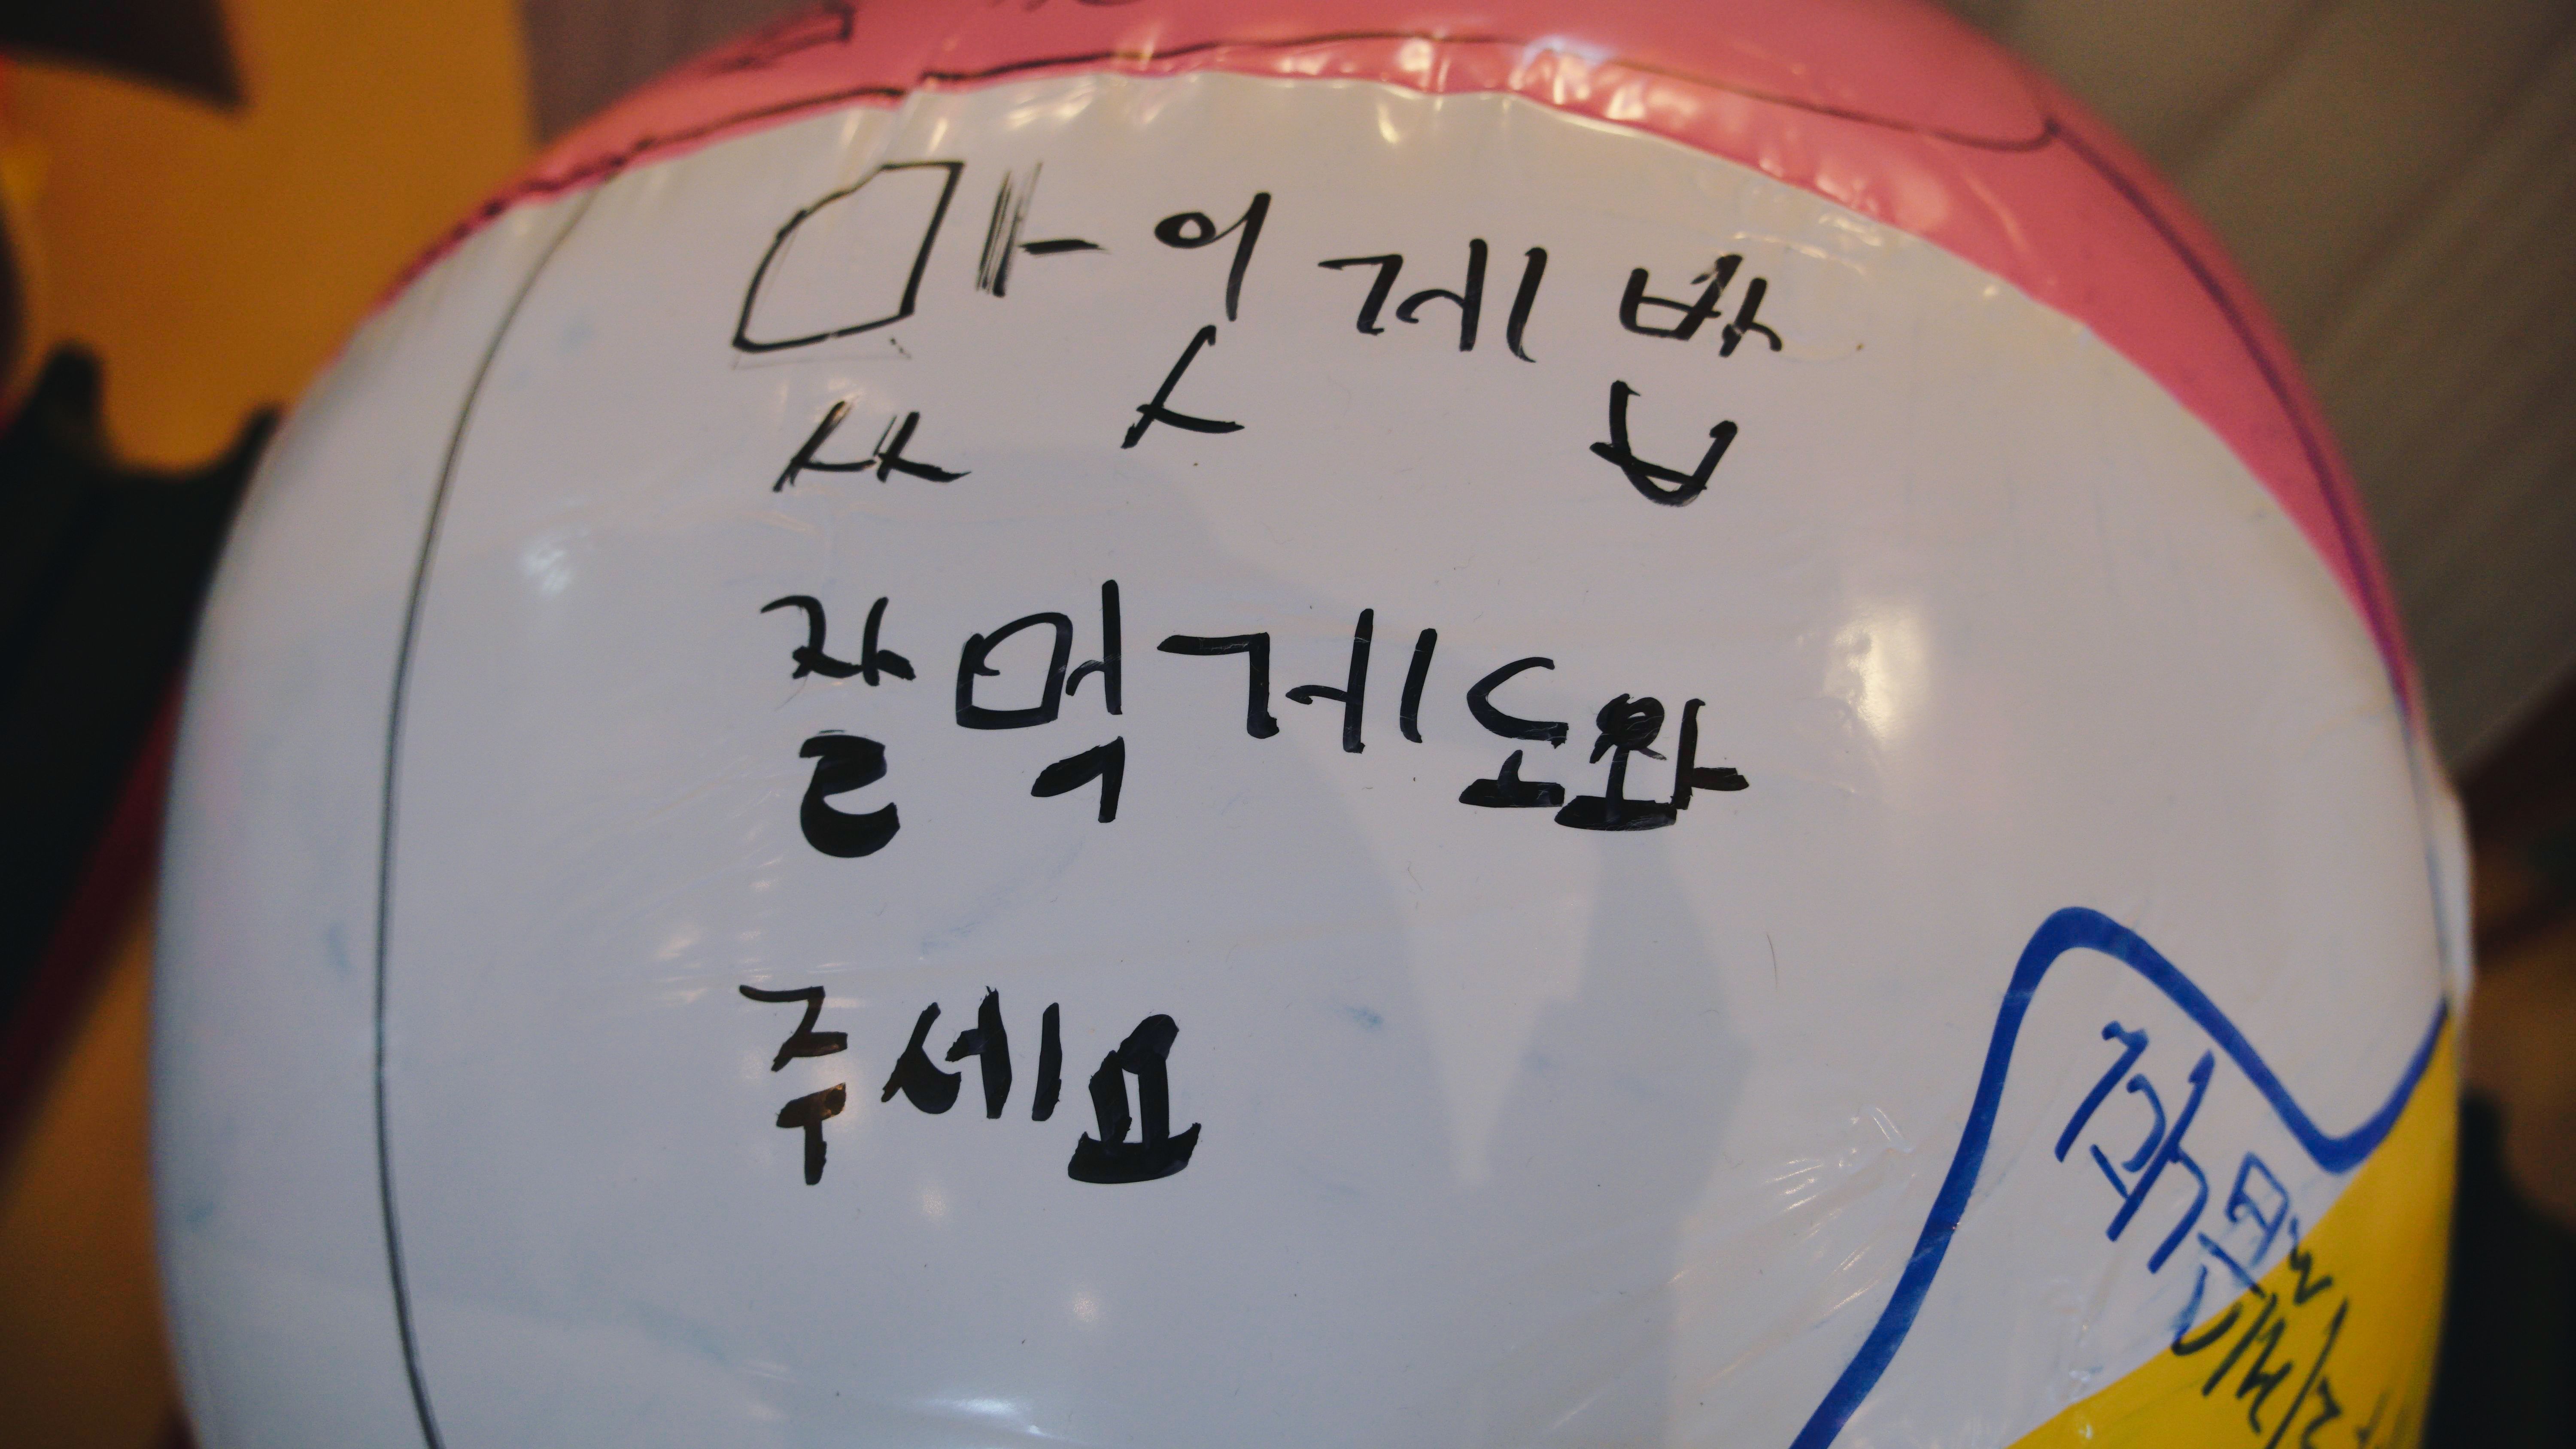 맜엇게밥
잘먹게도와
주세요